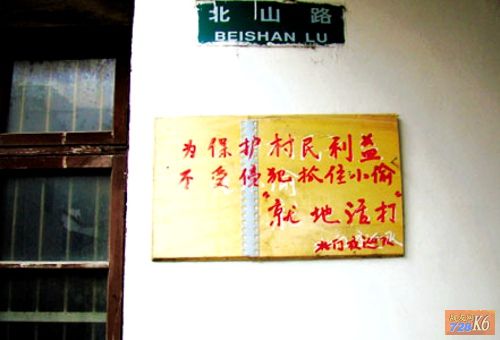 北山路
BEISHAN LU
为保护村民利益
不受侵犯抓住小偷
"就地活打"
北门夜巡队
K6